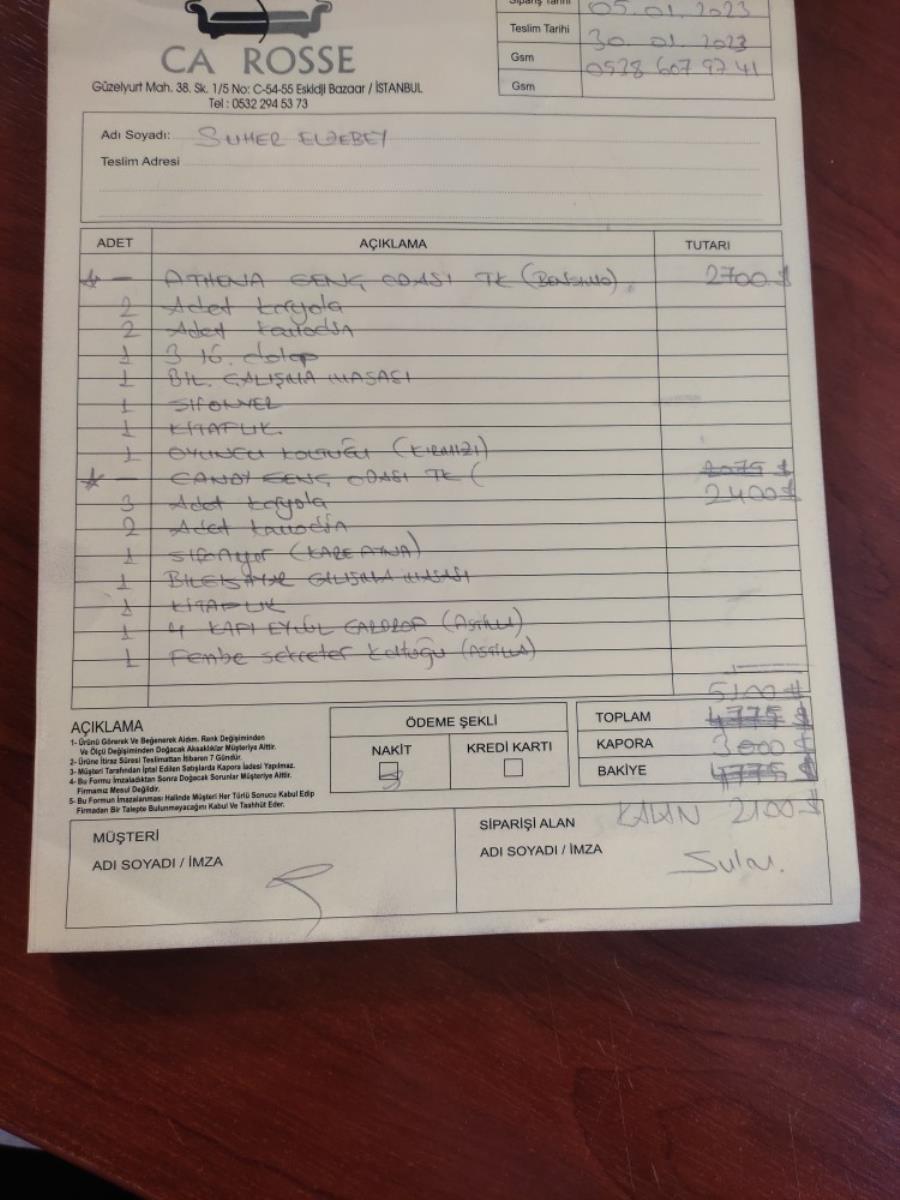 Sipariş Tarihi 05.01.2023
Teslim Tarihi 30.01.2023
Gsm 0538 607 97 41
Gsm
CA ROSSE
Güzelyurt Mah. 38. Sk. 1/5 No: C-54-55 Eskidji Bazaar / İSTANBUL
Tel : 0532 294 53 73
Adı Soyadı: SUHER ELZEBEY
Teslim Adresi
ADET AÇIKLAMA TUTARI
— ATHENA GENÇ ODASI TK 2700 $
2 Adet karyola
2 Adet komodin
1 3 dolap
1 BİL. ÇALIŞMA MASASI
1 ŞİFONYER
1 KİTAPLIK
1 OYUNCU KOLTUĞU (KIRMIZI)
— CANDY GENÇ ODASI TK ( 2075 $
3 Adet karyola 2400 $
2 Adet komodin
1 şifonyer (KARE AYNA)
1 BİLGİSAYAR ÇALIŞMA MASASI
1 KİTAPLIK
1 4 KAPI EYLÜL GARDROP
1 Pembe sekreter koltuğu
5100 $
AÇIKLAMA
1- Ürünü Görerek Ve Beğenerek Aldım. Renk Değişiminden
Ve Ölçü Değişiminden Doğacak Aksaklıklar Müşteriye Aittir.
2- Ürüne İtiraz Süresi Teslimattan İtibaren 7 Gündür.
3- Müşteri Tarafından İptal Edilen Satışlarda Kapora İadesi Yapılmaz.
4- Bu Formu İmzaladıktan Sonra Doğacak Sorunlar Müşteriye Aittir.
Firmamız Mesul Değildir.
5- Bu Formun İmzalanması Halinde Müşteri Her Türlü Sonucu Kabul Edip
Firmadan Bir Talepte Bulunmayacağını Kabul Ve Taahhüt Eder.
ÖDEME ŞEKLİ
NAKİT KREDİ KARTI
TOPLAM 4775 $
KAPORA 3000 $
BAKİYE 4775 $
KALAN 2100 $
MÜŞTERİ
ADI SOYADI / İMZA
SİPARİŞİ ALAN
ADI SOYADI / İMZA